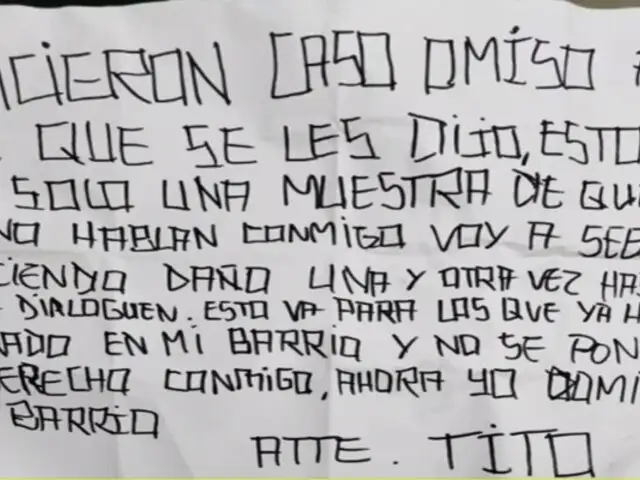 ICIERON CASO OMISO A
QUE SE LES DIJO, ESTO
SOLO UNA MUESTRA DE QU
NO HABLAN CONMIGO VOY A SE
CIENDO DAÑO UNA Y OTRA VEZ HAS
DIALOGUEN. ESTO VA PARA LOS QUE YA H
ADO EN MI BARRIO Y NO SE PON
ERECHO CONMIGO, AHORA YO DOMI
BARRIO
ATTE. TITO